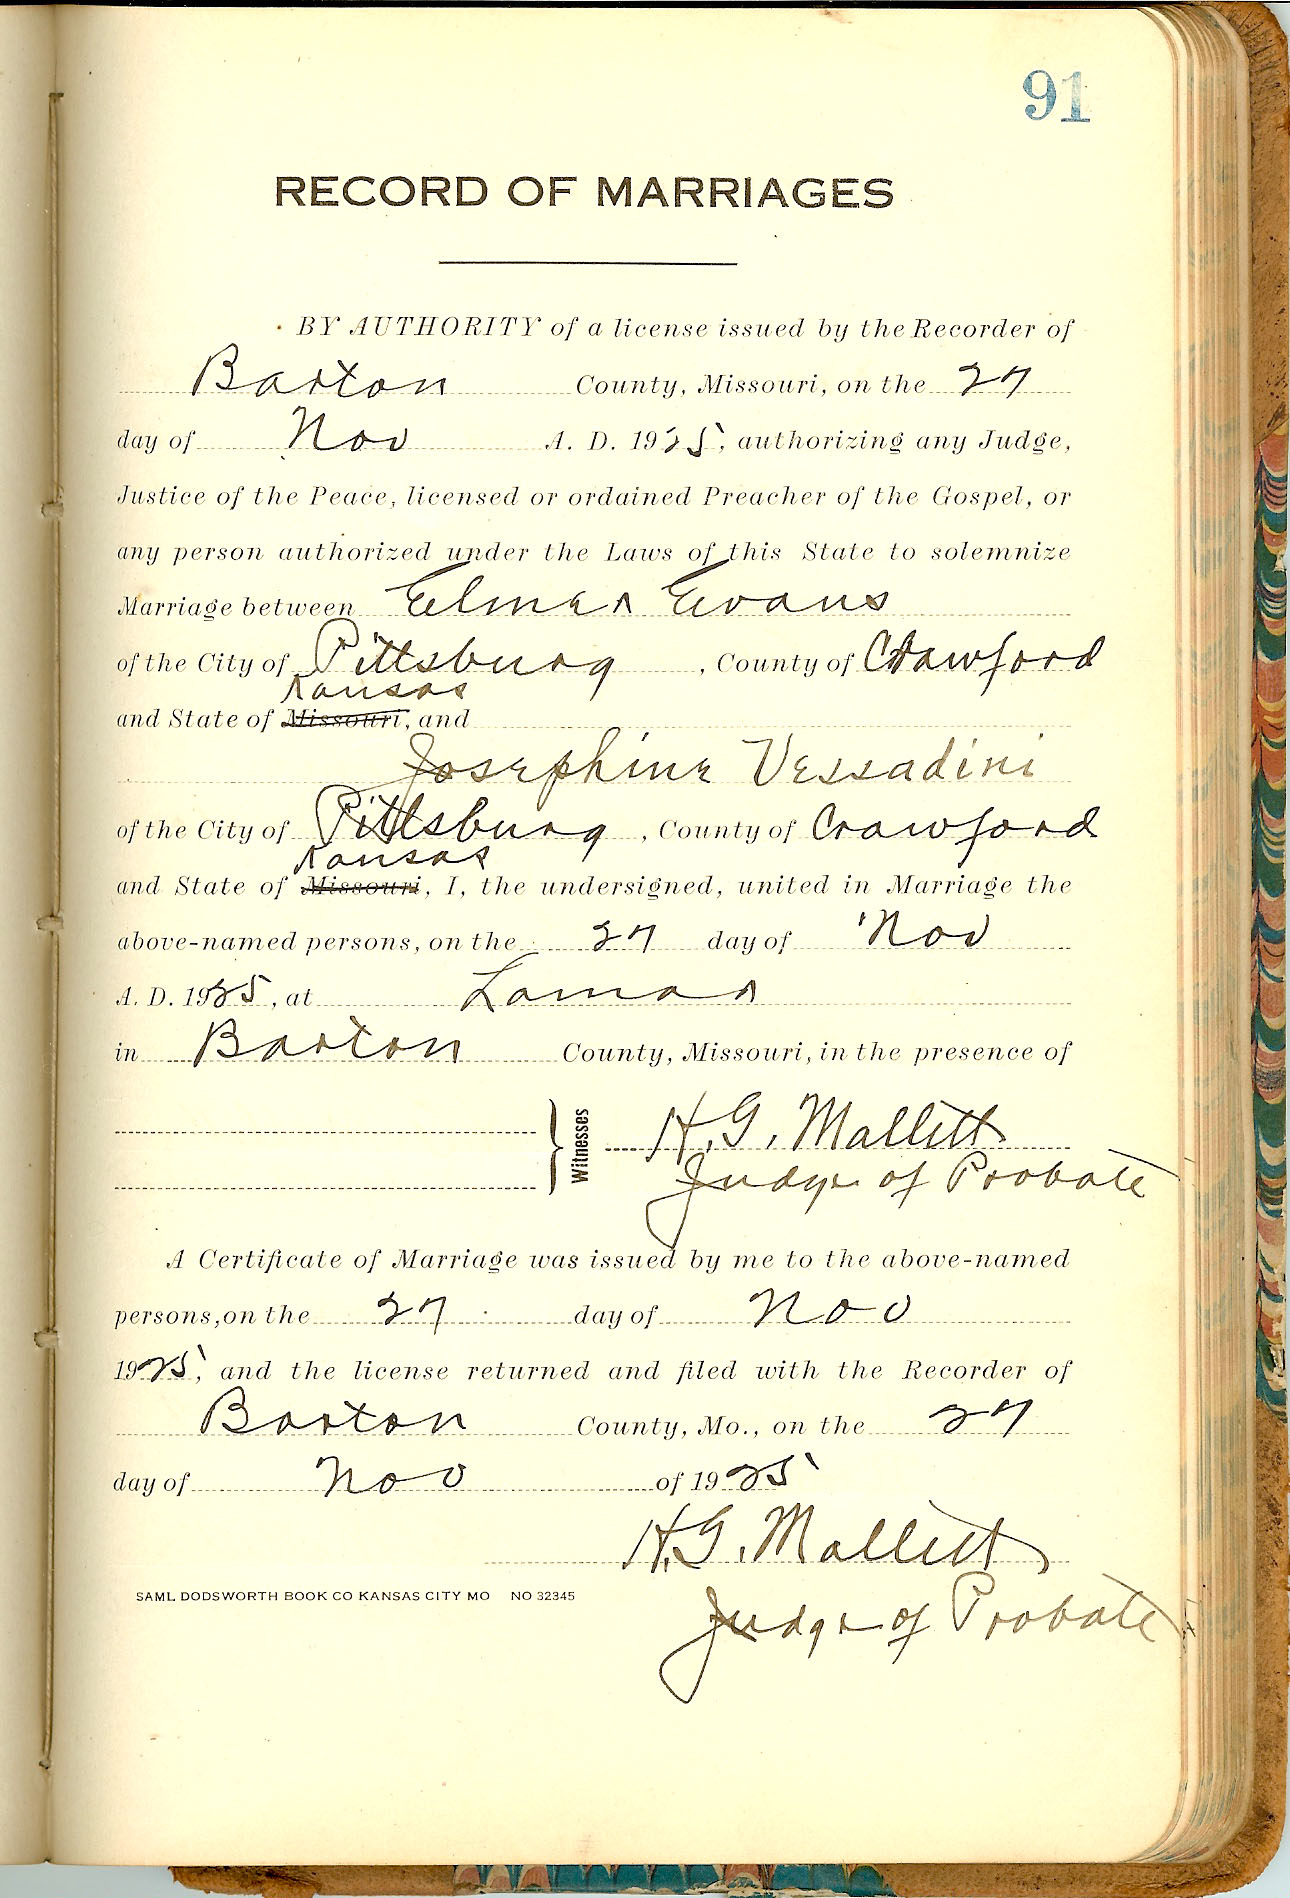 91
RECORD OF MARRIAGES
BY AUTHORITY of a license issued by the Recorder of
Barton County, Missouri, on the 27
day of Nov A. D. 1925, authorizing any Judge,
Justice of the Peace, licensed or ordained Preacher of the Gospel, or
any person authorized under the Laws of this State to solemnize
Marriage between Elmer Evans
of the City of Pittsburg, County of Crawford
Kansas
and State of Missouri, and
Josephine Vessadini
of the City of Pittsburg, County of Crawford
Kansas
and State of Missouri, I, the undersigned, united in Marriage the
above-named persons, on the 27 day of Nov
A. D. 1925, at Lamar
in Barton County, Missouri, in the presence of
Witnesses H. G. Mallett
Judge of Probate
A Certificate of Marriage was issued by me to the above-named
persons, on the 27 day of Nov
1925, and the license returned and filed with the Recorder of
Barton County, Mo., on the 27
day of Nov of 1925
H. G. Mallett
SAML DODSWORTH BOOK CO KANSAS CITY MO NO 32345
Judge of Probate